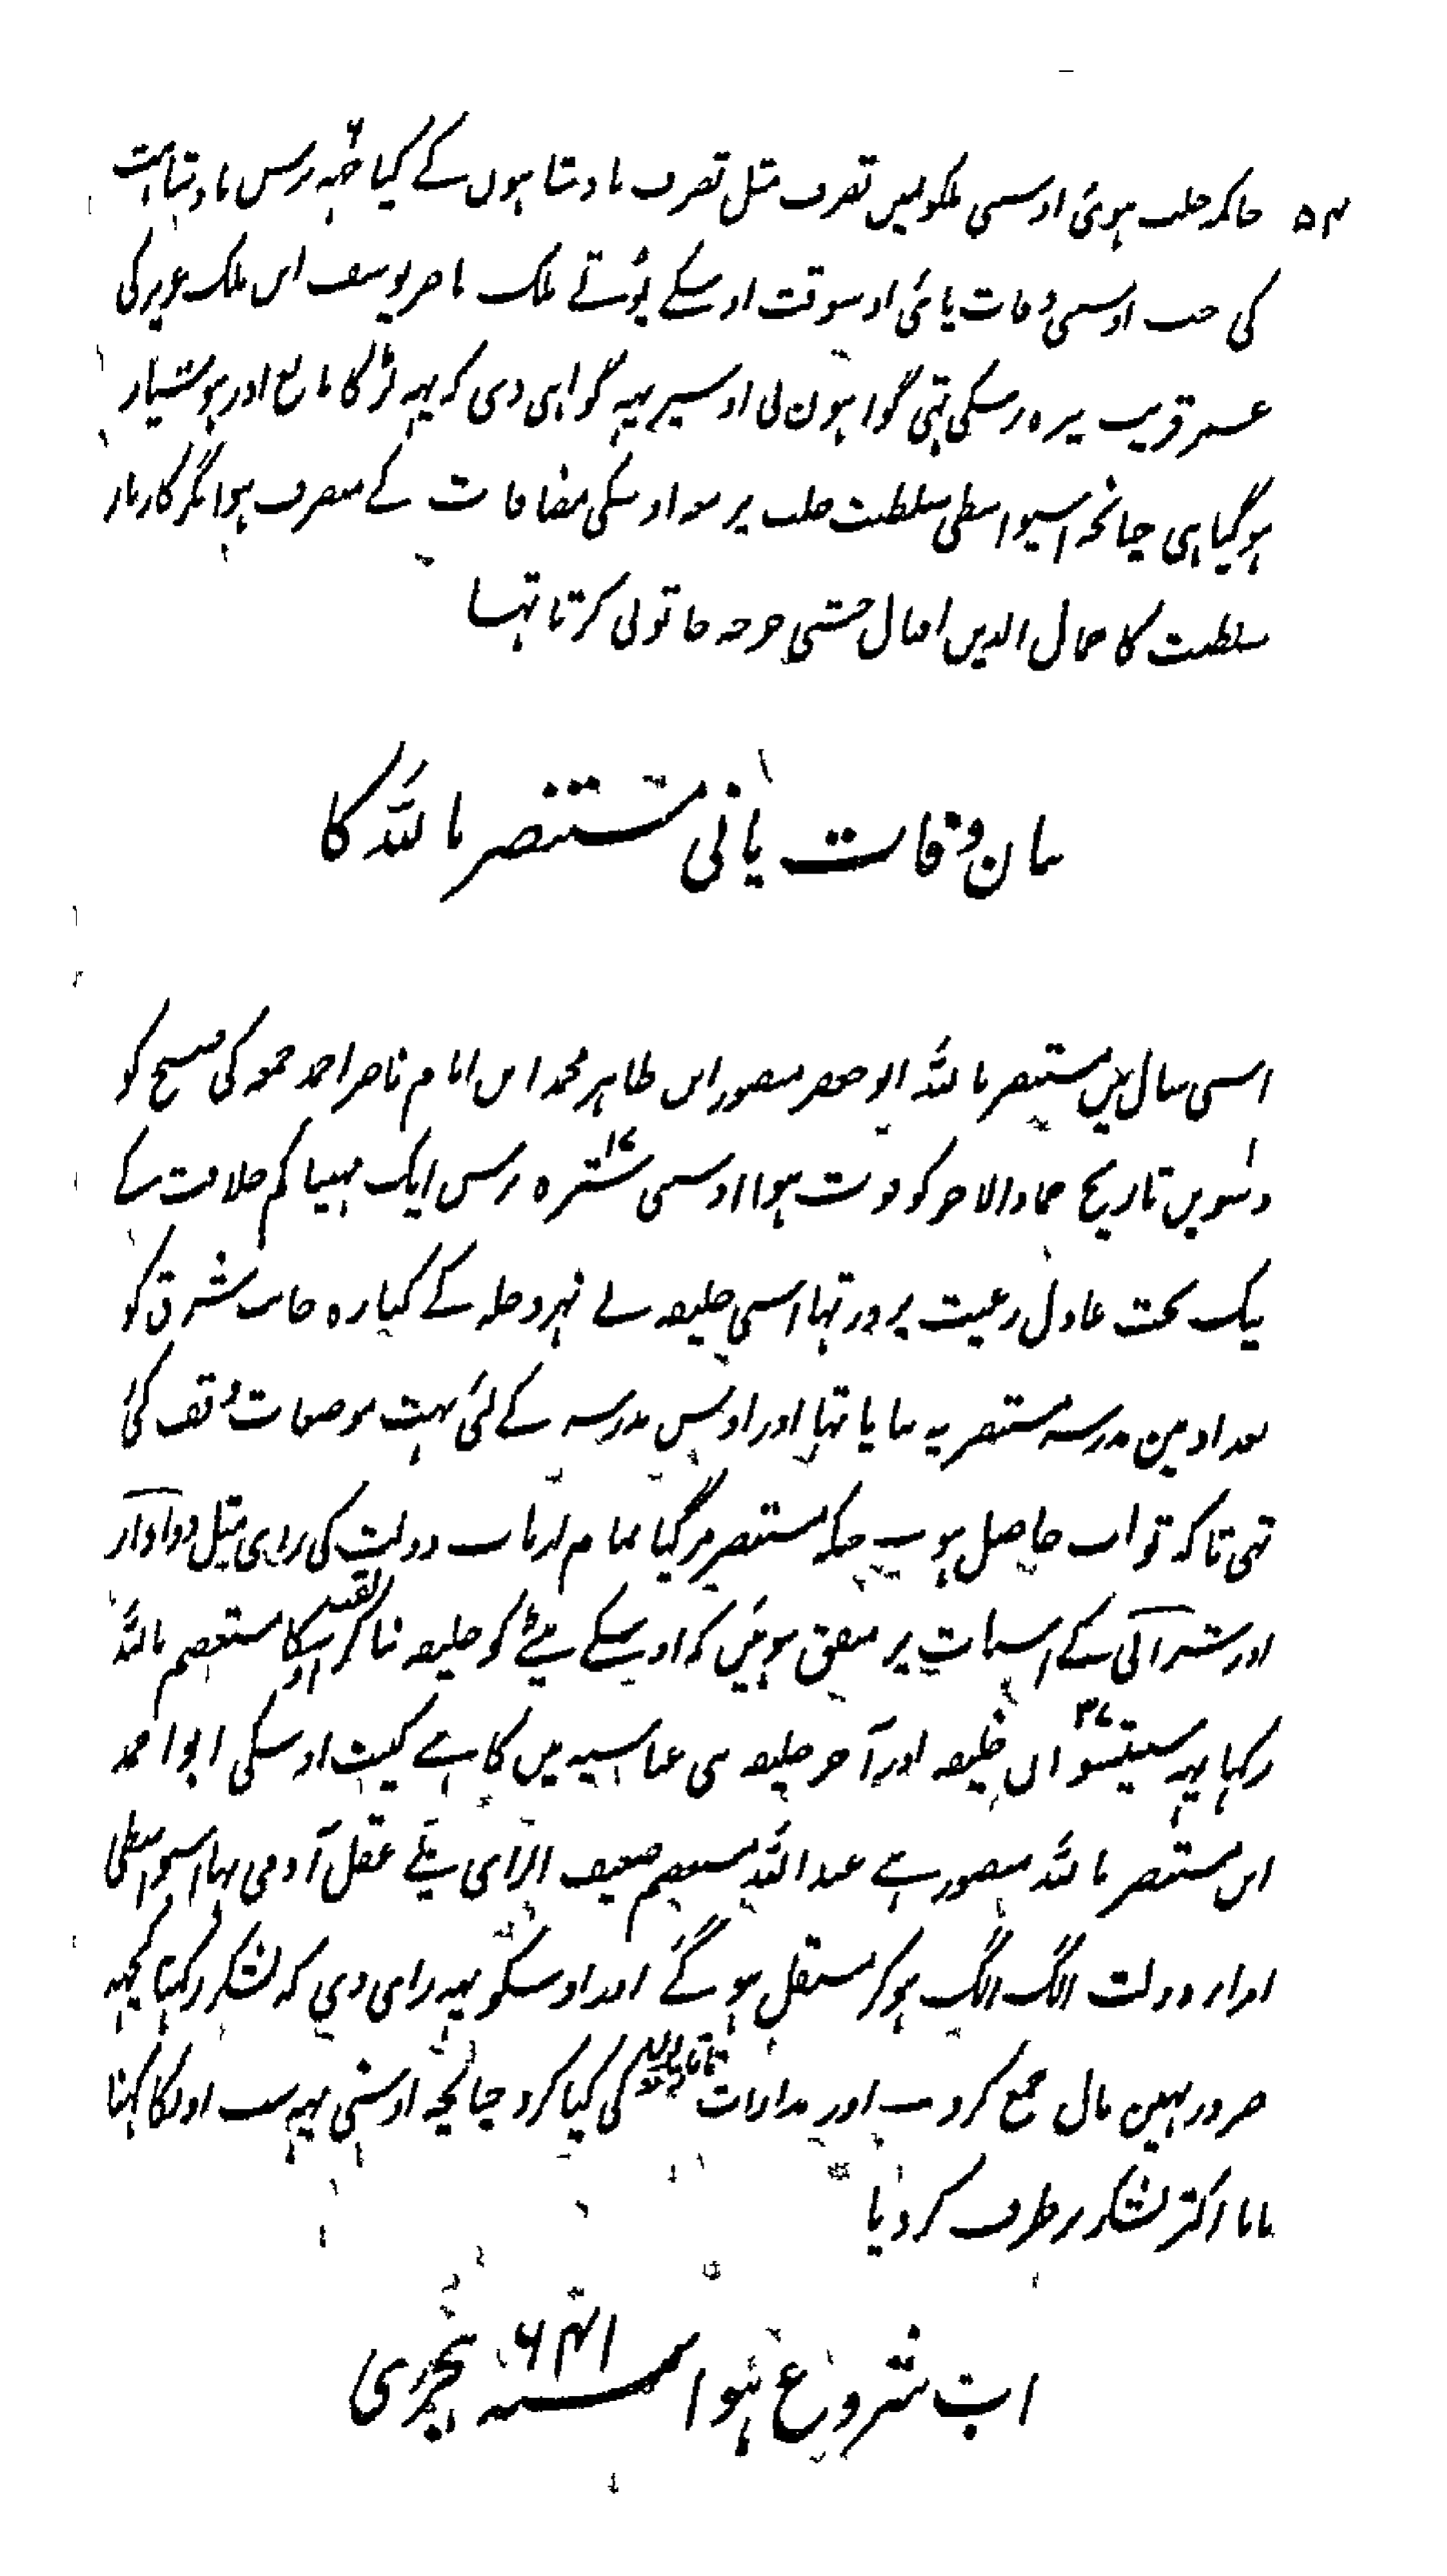 ۵۴ حاکمہ حلب ہوئی اوسی ملکونمیں تصرف مثل تصرف بادشاہوں کے کیا چھہ ۶ برس بادشاہت
کی جب اوسی وفات پائی اوسوقت اوسکے پوتے ملک ناصر یوسف ابن ملک عزیز کی
عمر قریب تیرہ برسکی تہی گواہون نی اوسپر یہہ گواہی دی کہ یہہ لڑکا بالغ اور ہوشیار
ہوگیا ہی چنانچہ اسیواسطی سلطنت حلب پر معہ اوسکی مضافات کے متصرف ہوا مگر کاربار
سلطنت کا جمال الدین اقبال حبشی خوجہ خاتونی کرتا تہا
بیان وفات پانی مستنصر باللہ کا
اسی سال میں مستنصر باللہ ابو جعفر منصور ابن طاہر محمد ابن امام ناصر احمد جمعہ کی صبح کو
دسویں تاریخ جماد الاخر کو فوت ہوا اوسی سترہ ۱۷ برس ایک مہینا کم خلافت کے
نیک بخت عادل رعیت پرور تہا اسی خلیفہ نے نہر دجلہ کے کنارہ جانب شرق کو
بغداد مین مدرسہ مستنصریہ بنایا تہا اور اوس مدرسہ کے لئی بہت موضعات وقف کئی
تہی تاکہ ثواب حاصل ہو جبکہ مستنصر مر گیا تمام ارباب دولت کی رای مثل دوادار
اور شرابی کے اسبات پر متفق ہوئیں کہ اوسکے بیٹے کو خلیفہ بناکر لقب اوسکا مستعصم باللہ
رکہا یہہ سینتسواں ۳۷ خلیفہ اور آخر خلیفہ بنی عباسیہ میں کا ہے کنیت اوسکی ابو احمد
ابن مستنصر باللہ منصور ہے عبد اللہ مستعصم ضعیف الرای بے عقل آدمی تہا اسیواسطی
امراء دولت الگ الگ ہوکر مستقل ہو گئے اور اوسکو یہہ رای دی کہ لشکر رکہنا کچہہ
ضرور نہین مال جمع کرو اور مدارات تاتاریوں کی کیا کرو چنانچہ اوسنی یہہ سب اونکا کہنا
مانا اکثر لشکر برطرف کردیا
اب شروع ہوا سنہ ۶۴۱ ہجری